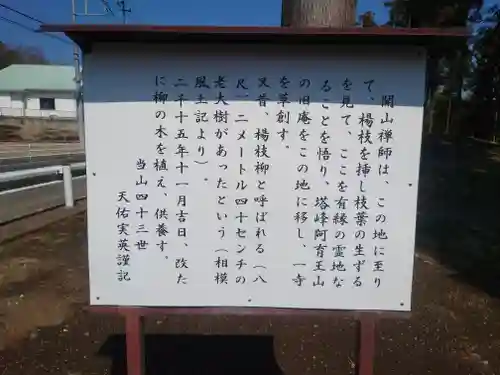 開山禅師は、この地に至り
て、楊枝を挿し枝葉の生ずる
を見て、ここを有縁の霊地な
ることを悟り、塔峰阿育王山
の旧庵をこの地に移し、一寺
を草創す。
又昔、楊枝柳と呼ばれる（八
尺、二メートル四十センチの
老大樹があったという（相模
風土記より）。
二千十五年十一月吉日、改た
に柳の木を植え、供養す。
当山四十三世
天佑実英謹記